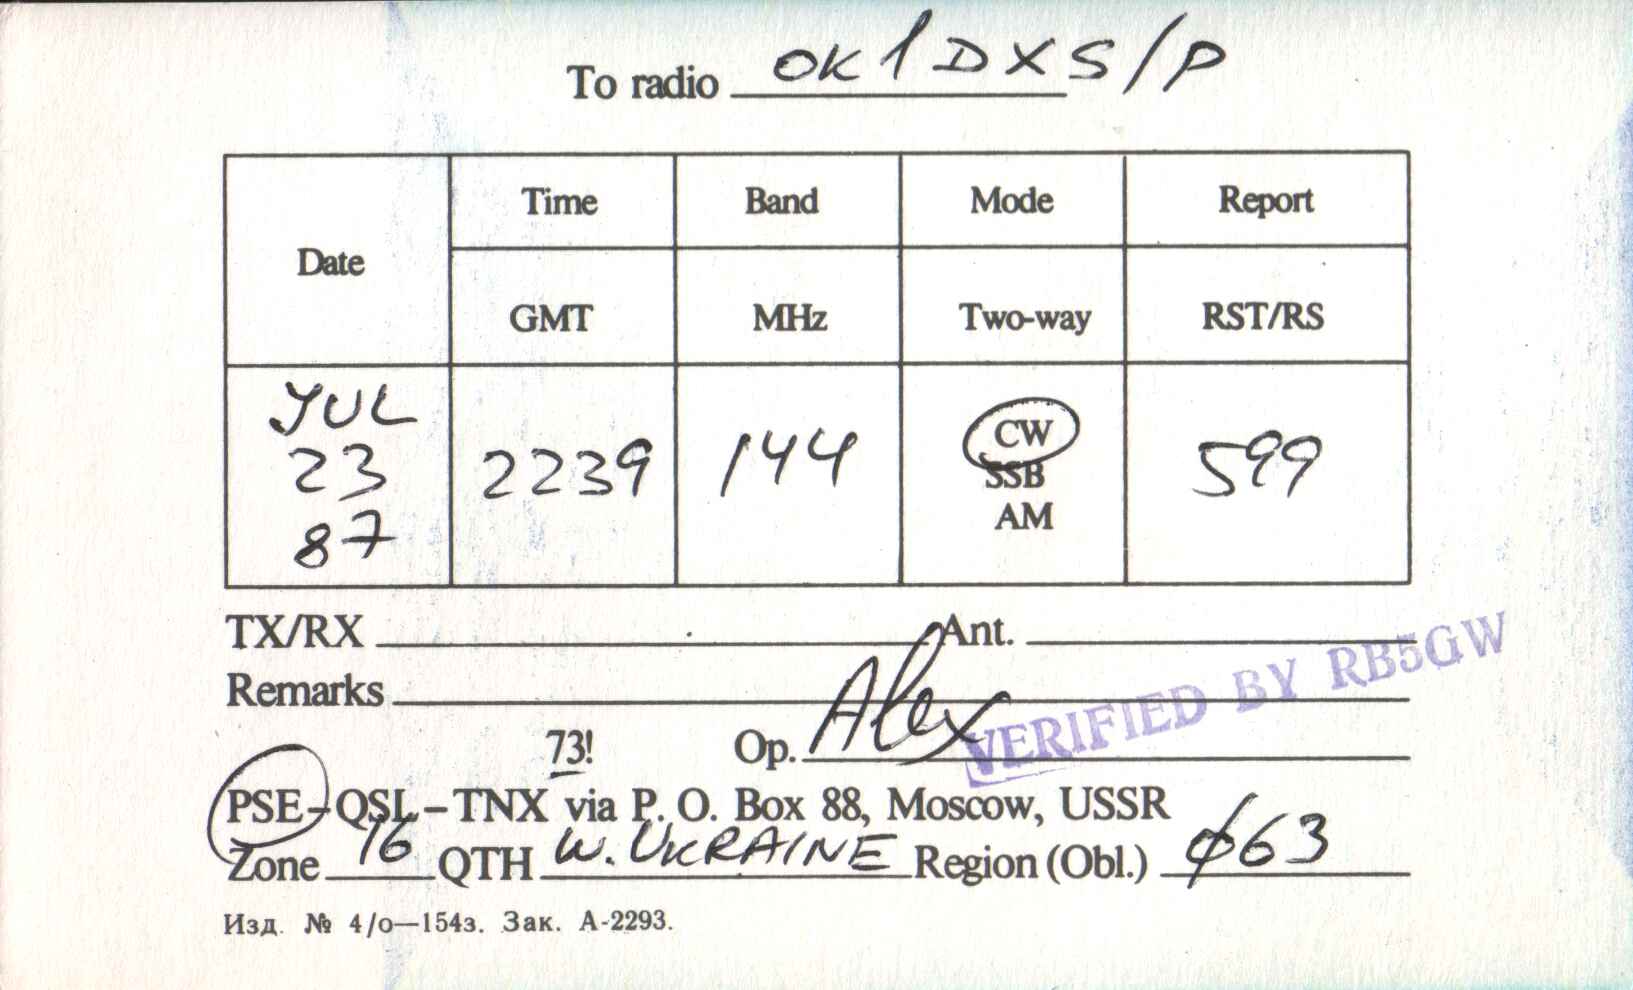 To radio OK1DXS/P
Date Time Band Mode Report
GMT MHz Two-way RST/RS
JUL 23 87 2239 144 CW SSB AM 599
TX/RX Ant.
Remarks
73! Op. Alex
VERIFIED BY RB5GW
PSE-QSL-TNX via P. O. Box 88, Moscow, USSR
Zone 16 QTH W. UKRAINE Region (Obl.) Ø63
Изд. № 4/о—154з. Зак. А-2293.